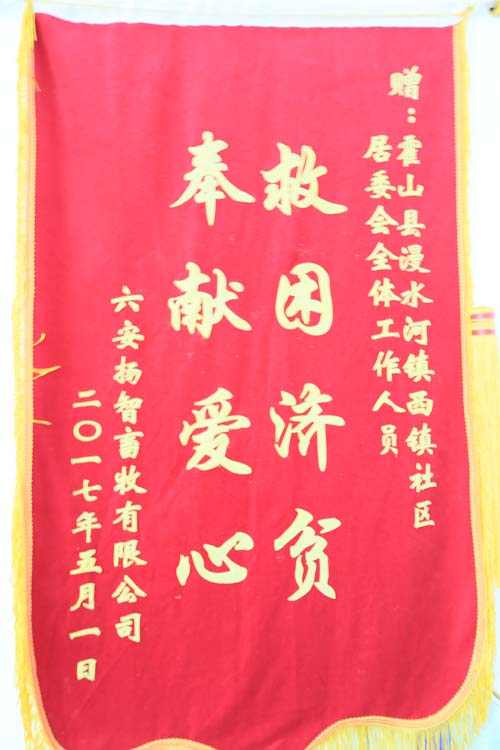 赠：霍山县漫水河镇西镇社区
居委会全体工作人员
救困济贫
奉献爱心
六安扬智畜牧有限公司
二〇一七年五月一日